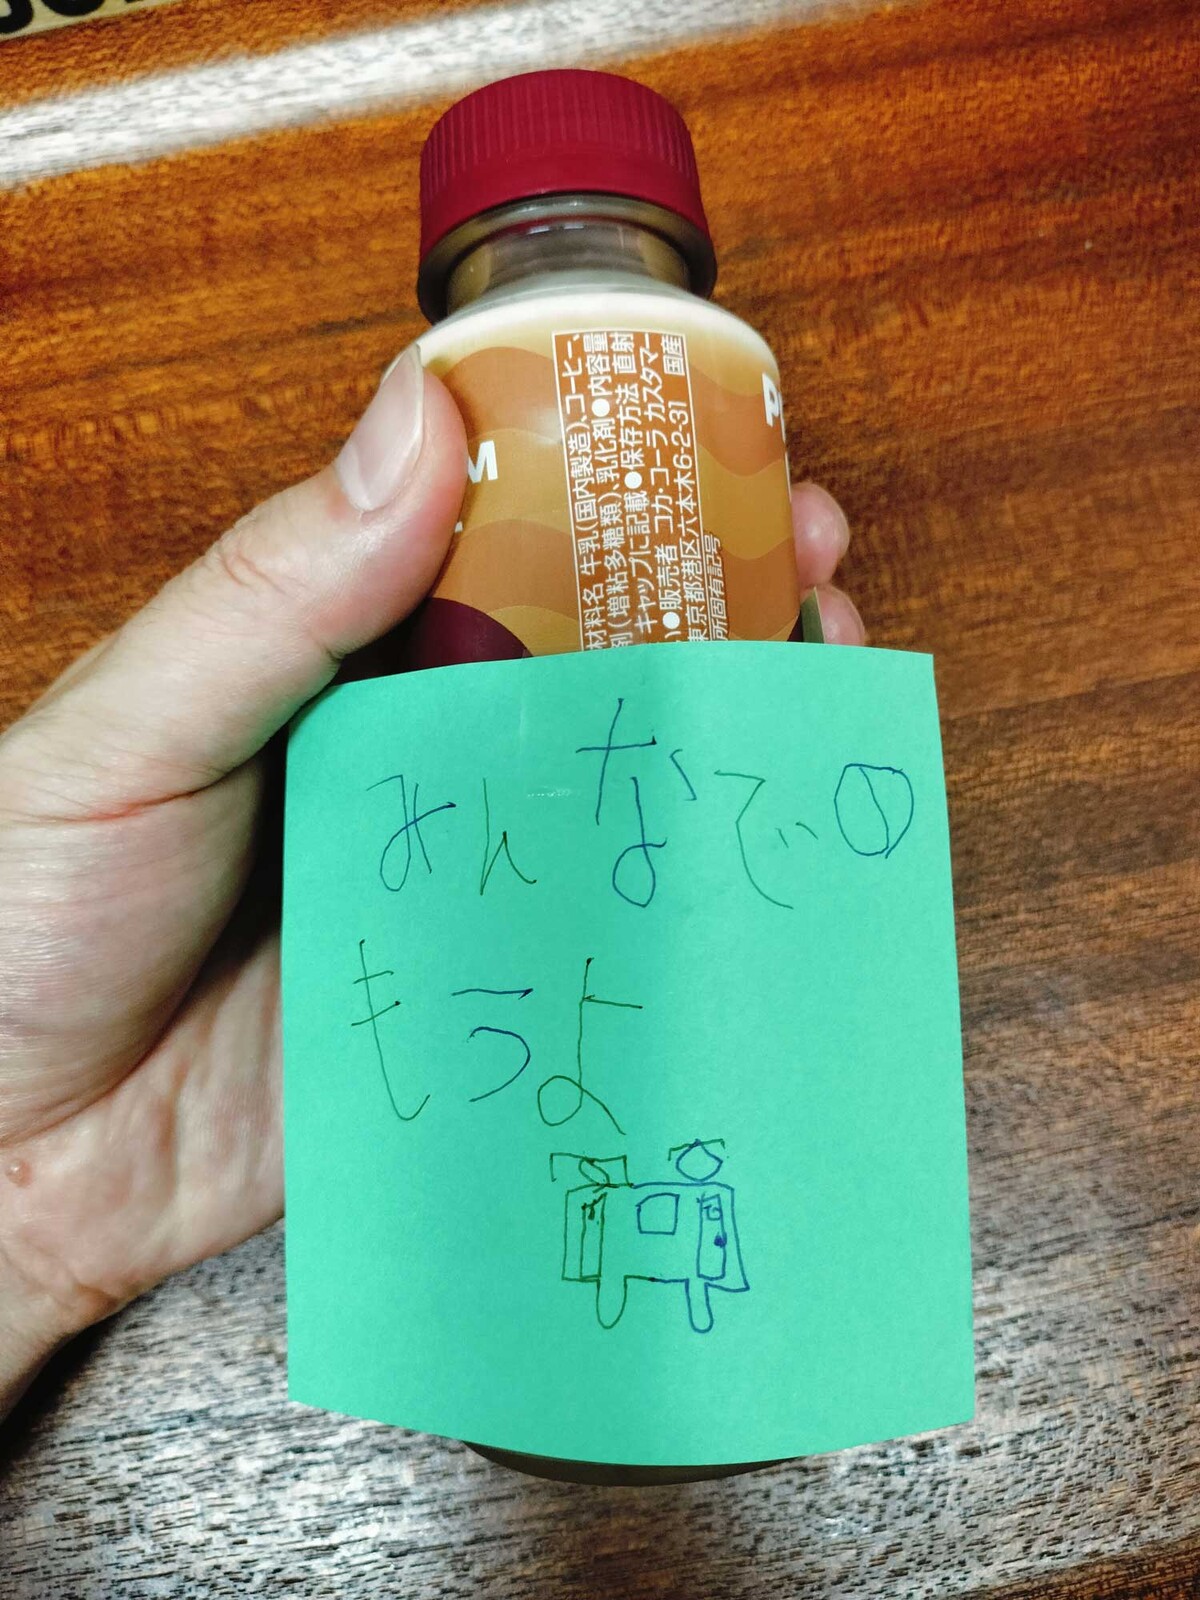 材料名 牛乳(国内製造)、コーヒー、
剤(増粘多糖類)、乳化剤●内容量
キャップに記載●保存方法 直射
い●販売者 コカ・コーラ カスタマー
東京都港区六本木6-2-31 国産
所固有記号
みんなでの
もうよ